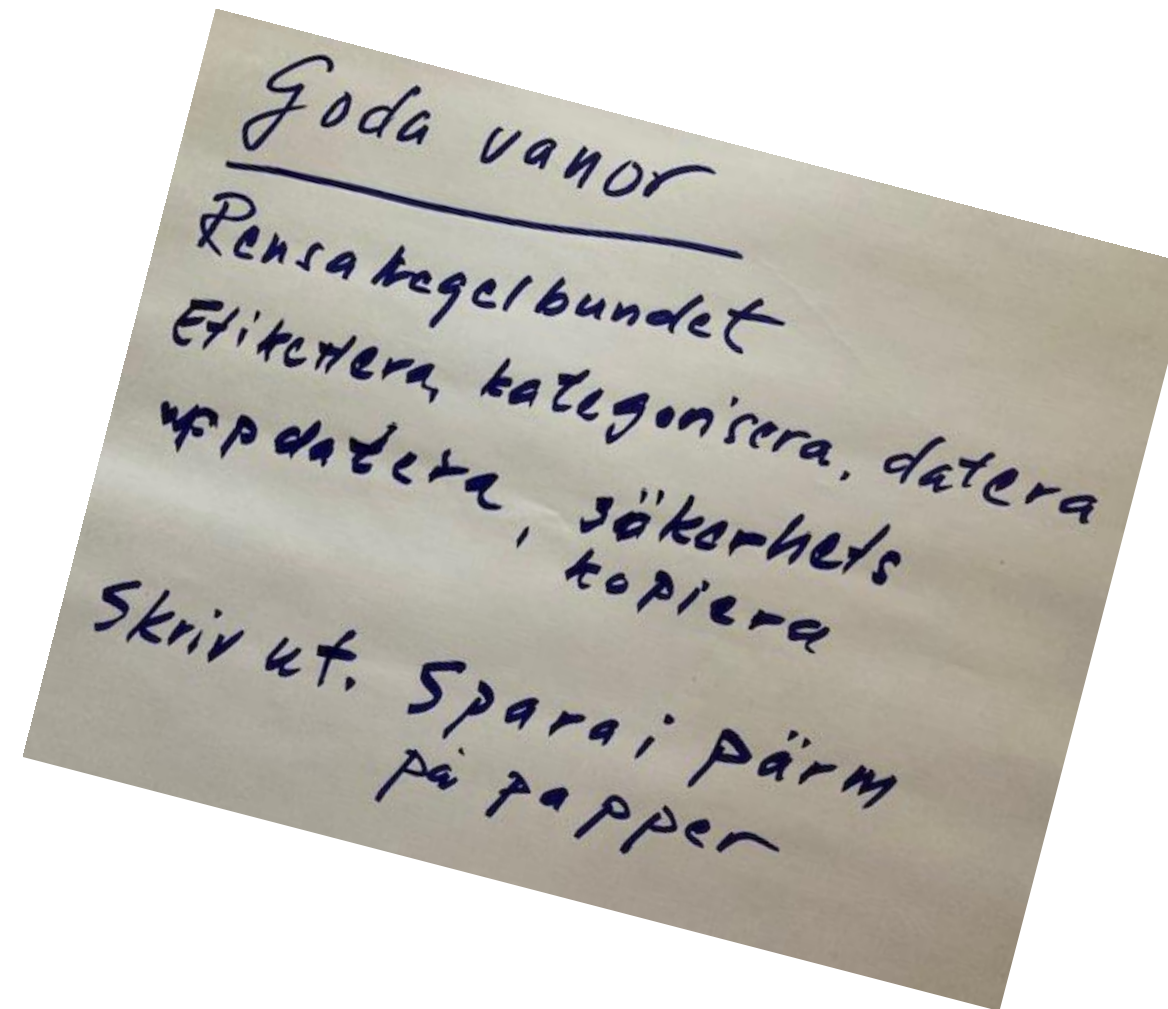 Goda vanor
Rensa regelbundet
Etikettera, kategorisera, datera
uppdatera, säkerhets
kopiera
Skriv ut. Spara i pärm
på papper